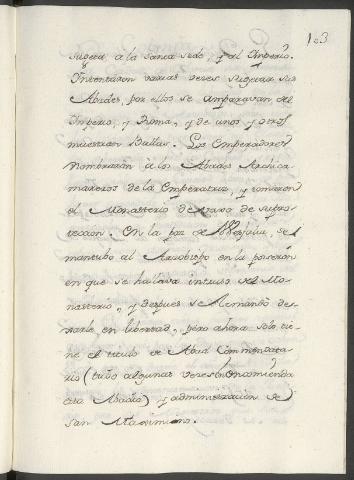 103
sugeta, a la santa sede, y al Imperio.
Intentaron varias veces sugetar sus
Abades, por ellos se amparavan del
Imperio, y Roma, y de unos y otros
muestran Bullas. Los Emperadores
nombraron à los Abades Archica
mareros de la Emperatriz, y tomaron
el Monasterio de vajo de su pro-
teccion. En la paz de Westfalia, se
mantubo al Arzobispo en la posesion
en que se hallava intruso del Mo-
nasterio, y despues se le mandò de-
xarle en libertad, pero ahora solo tie-
ne el titulo de Abad Commendata-
rio (tubo algunas veces en encomienda
esta Abadia) y administracion de
san Maximino.